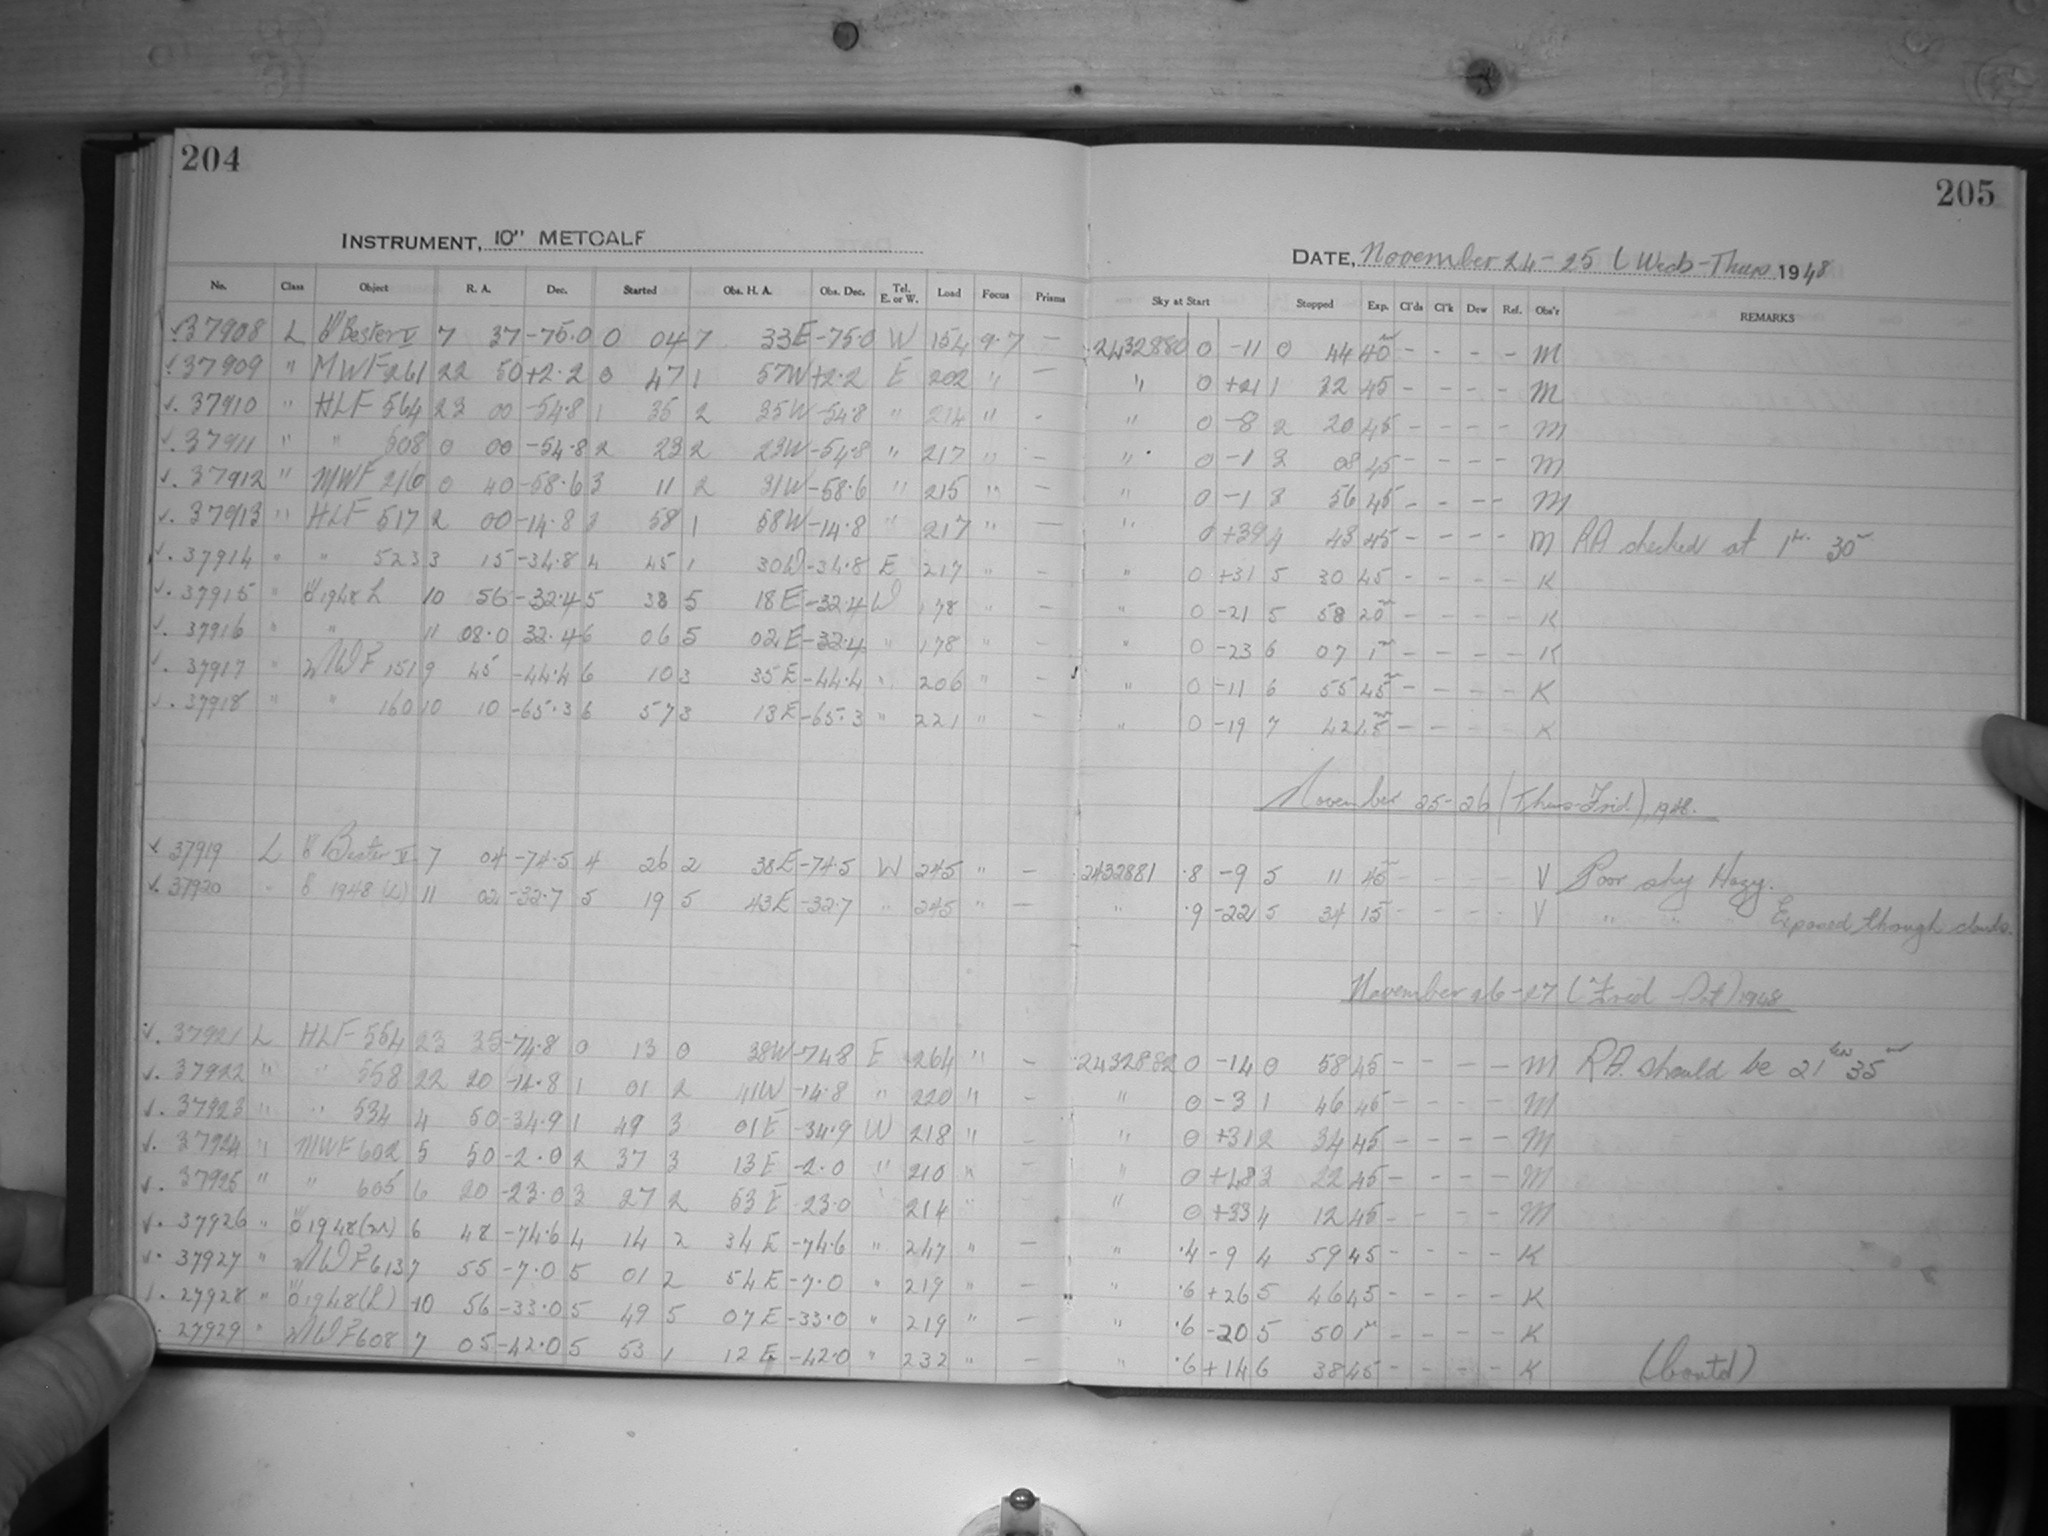 204
205
INSTRUMENT, 10" METCALF
DATE, November 24-25 (Wed-Thurs 1948
No. Class Object R. A. Dec. Started Obs. H. A. Obs. Dec. Tel. E. or W. Load Focus Prisms Sky at Start Stopped Exp. Cl'ds Cl'k Dew Ref. Obs'r REMARKS
37908 L Bester V 7 37 -75.0 0 04 7 33E -75.0 W 154 9.7 — 2432880 0 -11 0 44 40m - - - - M
37909 " MWF 261 22 50 +2.2 0 47 1 57W +2.2 E 202 " — " 0 +21 1 32 45 - - - - M
37910 " HLF 564 23 00 -54.8 1 35 2 35W -54.8 " 214 " - " 0 -8 2 20 45 - - - - M
37911 " " 508 0 00 -54.8 2 23 2 23W -54.8 " 217 " — " 0 -1 3 08 45 - - - - M
37912 " MWF 216 0 40 -58.6 3 11 2 31W -58.6 " 215 " — " 0 -1 3 56 45 - - - - M
37913 " HLF 517 2 00 -14.8 3 58 1 58W -14.8 " 217 " — " 0 +39 4 43 45 - - - - M RA checked at 1hr. 30m
37914 " " 523 3 15 -34.8 4 45 1 30W -34.8 E 217 " — " 0 +31 5 30 45 - - - - K
37915 " 1948 L 10 56 -32.4 5 38 5 18E -32.4 W 178 " — " 0 -21 5 58 20m - - - - K
37916 " " 11 08.0 32.4 6 06 5 02E -32.4 " 178 " — " 0 -23 6 07 1m - - - - K
37917 " MWF 151 9 45 -44.4 6 10 3 35E -44.4 " 206 " — " 0 -11 6 55 45m - - - - K
37918 " " 160 10 10 -65.3 6 57 3 13E -65.3 " 221 " — " 0 -19 7 42 45m - - - - K
November 25-26 (Thurs-Frid.), 1948.
37919 L Bester V 7 04 -74.5 4 26 2 38E -74.5 W 245 " — 2432881 .8 -9 5 11 45m - - - - V Poor sky Hazy.
37920 " 1948 (L) 11 02 -32.7 5 19 5 43E -32.7 " 245 " — " .9 -22 5 34 15m - - - - V " " " Exposed though clouds.
November 26-27 (Frid Sat) 1948
37921 L HLF 554 23 35 -74.8 0 13 0 38W -74.8 E 264 " — 2432882 0 -14 0 58 45 - - - - M RA. should be 21hr 35m
37922 " " 558 22 20 -14.8 1 01 2 41W -14.8 " 220 " - " 0 -3 1 46 45 - - - - M
37923 " " 534 4 50 -34.9 1 49 3 01E -34.9 W 218 " - " 0 +31 2 34 45 - - - - M
37924 " MWF 602 5 50 -2.0 2 37 3 13E -2.0 " 210 " - " 0 +48 3 22 45 - - - - M
37925 " " 605 6 20 -23.0 3 27 2 53E -23.0 " 214 " - " 0 +33 4 12 45 - - - - M
37926 " 1948(m) 6 48 -74.6 4 14 2 34E -74.6 " 247 " — " .4 -9 4 59 45 - - - - K
37927 " MWF 613 7 55 -7.0 5 01 2 54E -7.0 " 219 " — " .6 +26 5 46 45 - - - - K
27928 " 1948(L) 10 56 -33.0 5 49 5 07E -33.0 " 219 " — " .6 -20 5 50 1m - - - - K
27929 " MWF 608 7 05 -42.0 5 53 1 12E -42.0 " 232 " — " .6 +14 6 38 45 - - - - K (Contd)